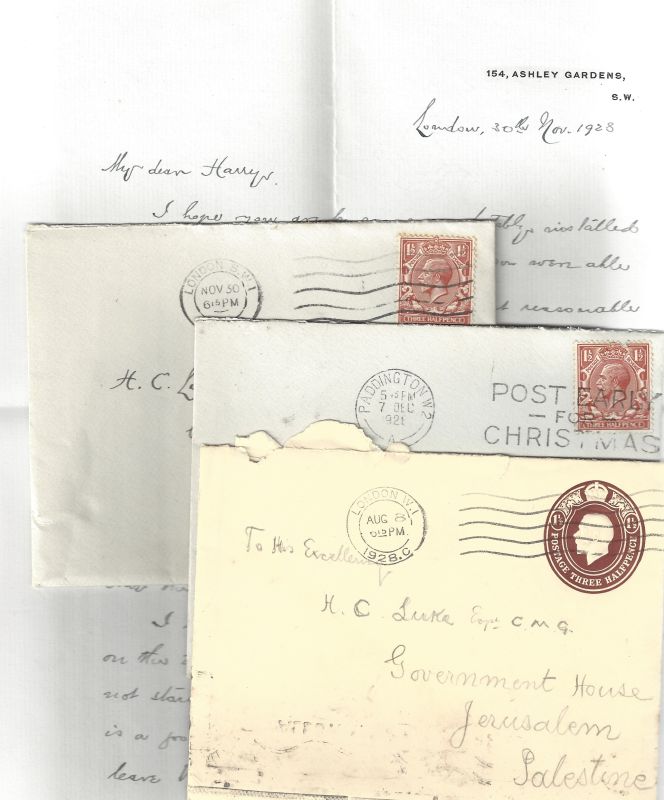 154, ASHLEY GARDENS,
S.W.
London, 30th Nov. 1928
My dear Harry,
I hope you installed
able
reasonable
LONDON.S.W.1
NOV 30
6 15 PM
1½ 1½
THREE HALFPENCE
H. C. L
PADDINGTON W2
5 15 PM
7 DEC
192
A
POST EARLY
— FOR —
CHRISTMAS
1½ 1½
THREE HALFPENCE
LONDON.W.1
AUG 8
6 15 PM
1928.C
POSTAGE THREE HALFPENCE
To His Excellency
H. C. Luke Esqr. C.M.G.
Government House
Jerusalem
Palestine
I
on this
not star
is a
leave